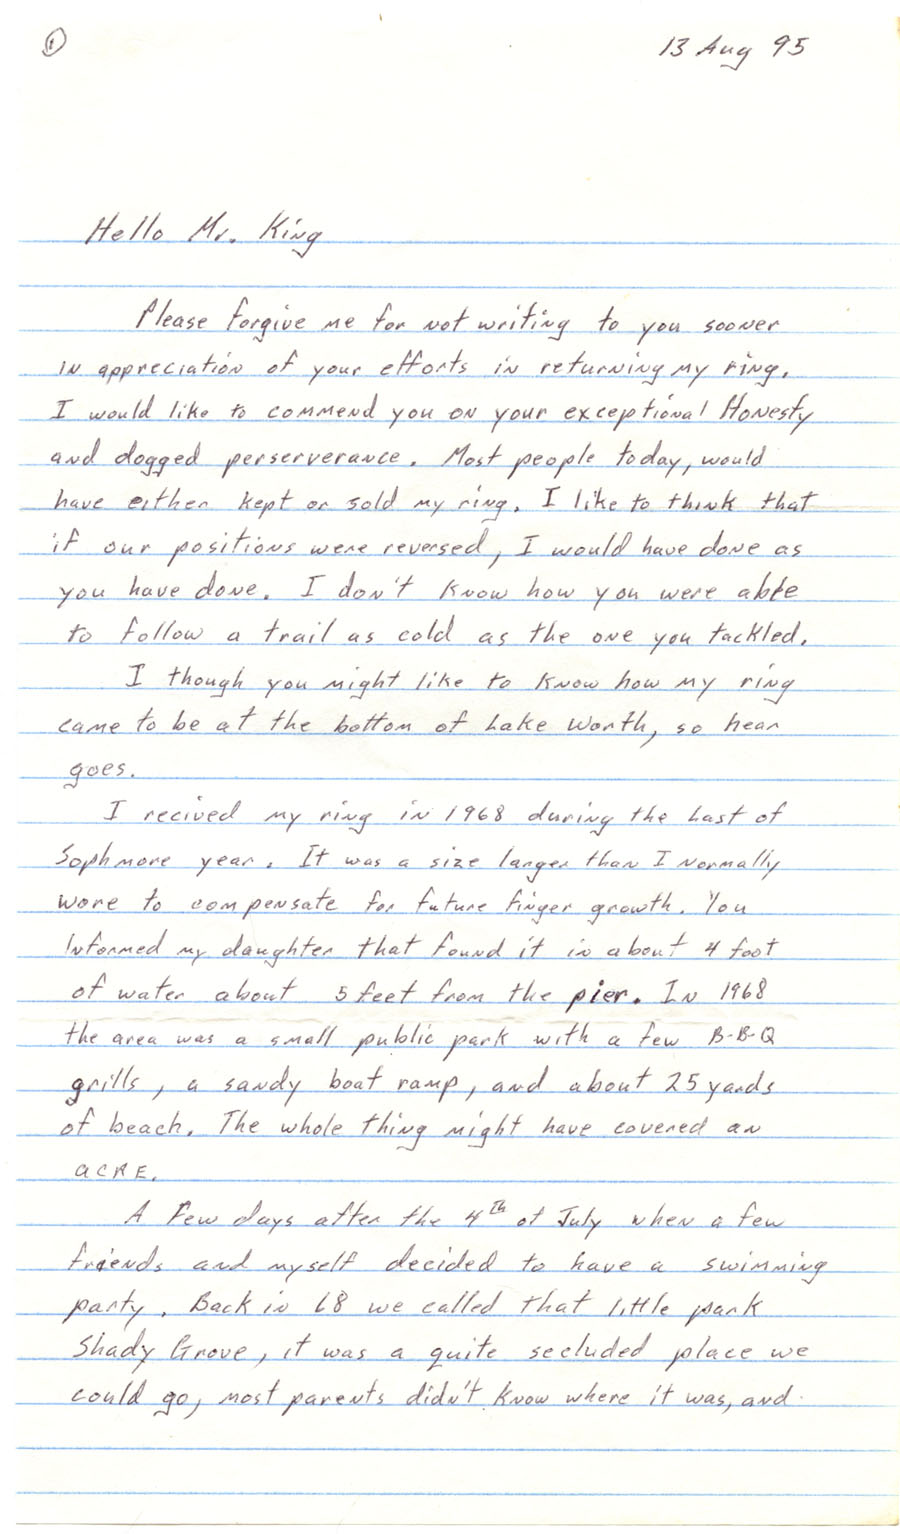 1
13 Aug 95
Hello Mr. King
Please forgive me for not writing to you sooner
in appreciation of your efforts in returning my ring.
I would like to commend you on your exceptional Honesty
and dogged perserverance. Most people today, would
have either kept or sold my ring. I like to think that
if our positions were reversed, I would have done as
you have done. I don't know how you were able
to follow a trail as cold as the one you tackled.
I though you might like to know how my ring
came to be at the bottom of Lake Worth, so hear
goes.
I recived my ring in 1968 during the Last of
Sophmore year. It was a size larger than I normally
wore to compensate for future finger growth. You
Informed my daughter that found it in about 4 foot
of water about 5 feet from the pier. In 1968
the area was a small public park with a few B-B-Q
grills, a sandy boat ramp, and about 25 yards
of beach. The whole thing might have covered an
acre.
A few days after the 4th of July when a few
friends and myself decided to have a swimming
party. Back in 68 we called that little park
Shady Grove, it was a quite secluded place we
could go, most parents didn't know where it was, and